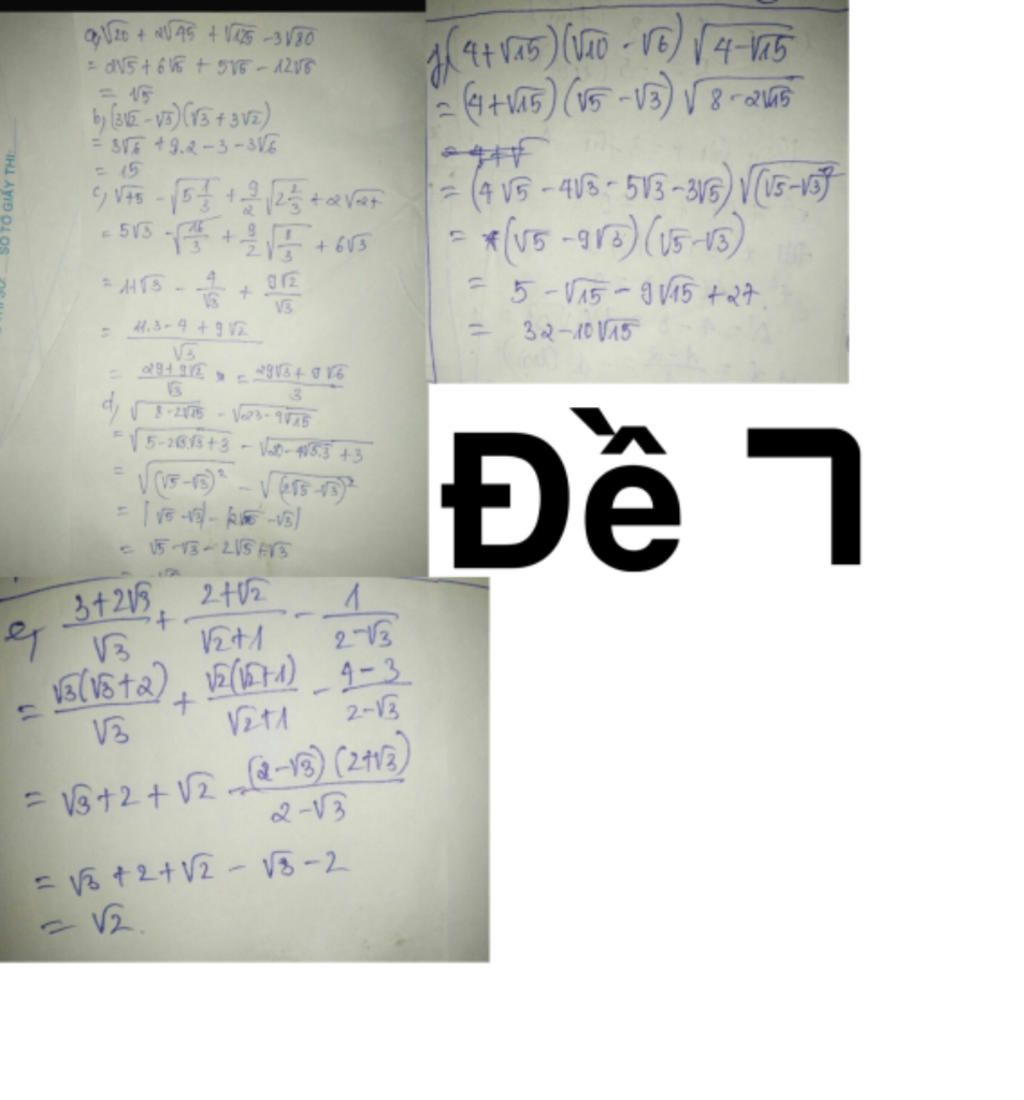 a, √20 + 2√45 + √125 - 3√80
= 2√5 + 6√5 + 5√5 - 12√5
= √5
b, (3√2 - √3)(√3 + 3√2)
= 3√6 + 9.2 - 3 - 3√6
= 15
c, √75 - √(5 1/3) + 9/2 √(2 2/3) + 2√27
= 5√3 - √(16/3) + 9/2 √(8/3) + 6√3
= 11√3 - 4/√3 + 9√2/√3
= (11.3 - 4 + 9√2)/√3
= (29 + 9√2)/√3 = (29√3 + 9√6)/3
d, √(8 - 2√15) - √(23 - 4√15)
= √(5 - 2√5.√3 + 3) - √(20 - 4√5.3 + 3)
= √((√5 - √3)²) - √((2√5 - √3)²)
= |√5 - √3| - |2√5 - √3|
= √5 - √3 - 2√5 + √3
(4 + √15)(√10 - √6) √(4 - √15)
= (4 + √15)(√5 - √3) √(8 - 2√15)
= (4√5 - 4√3 - 5√3 - 3√5) √((√5 - √3)²)
= (√5 - 9√3)(√5 - √3)
= 5 - √15 - 9√15 + 27
= 32 - 10√15
Đề ㄱ
e, (3 + 2√3)/√3 + (2 + √2)/(√2 + 1) - 1/(2 - √3)
= √3(√3 + 2)/√3 + √2(√2 + 1)/(√2 + 1) - (4 - 3)/(2 - √3)
= √3 + 2 + √2 - (2 - √3)(2 + √3)/(2 - √3)
= √3 + 2 + √2 - √3 - 2
= √2.
SỐ TỜ GIẤY THI: